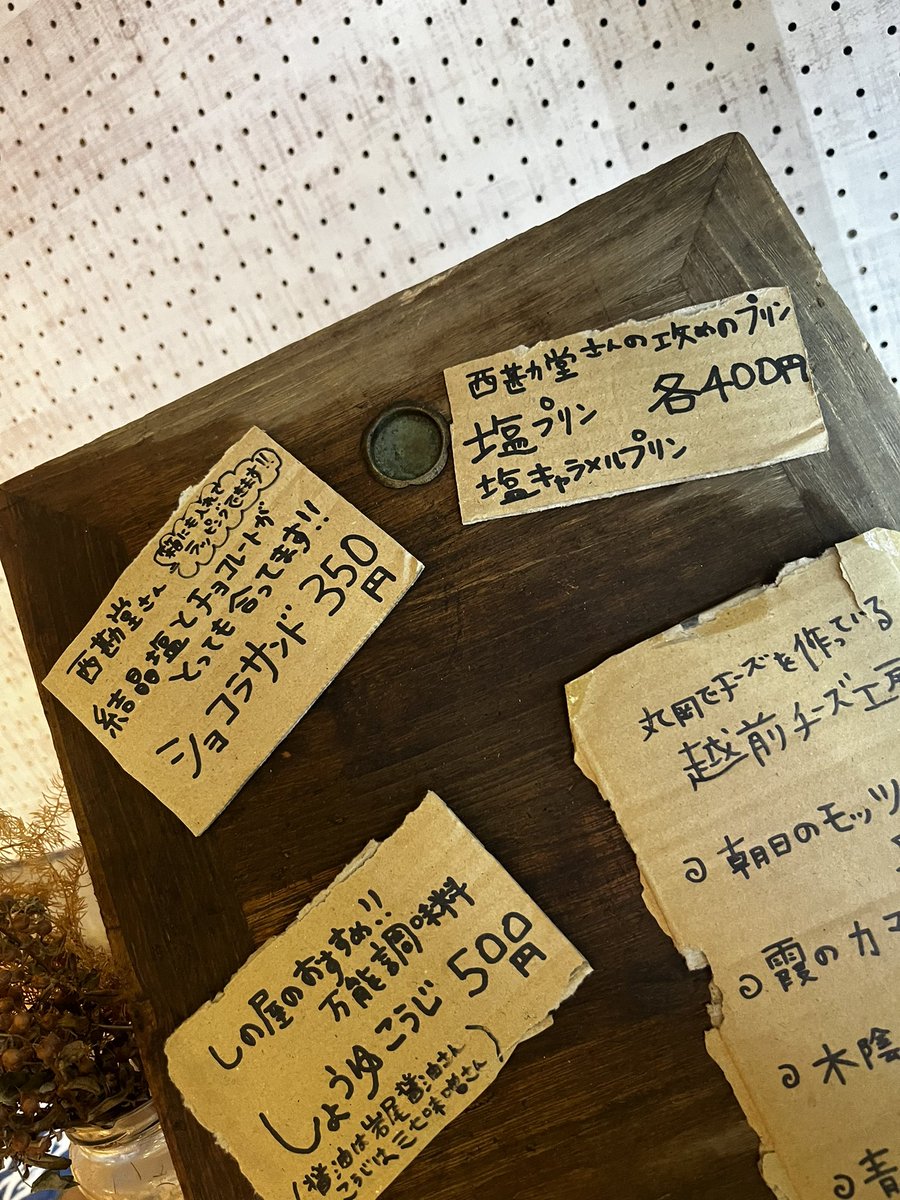 西勘堂さんの攻めのプリン
塩プリン 各400円
塩キャラメルプリン
箱にも入れて
ラッピングできます!!
西勘堂さん
結晶塩とチョコレートが
とっても合ってます!!
ショコラサンド 350円
丸岡でチーズを作っている
越前チーズ工房
朝日のモッツ
霞のカマ
木陰
青
しの屋のおすすめ!!
万能調味料
しょうゆこうじ 500円
(醤油は岩尾醤油さん
こうじは三七味噌さん)